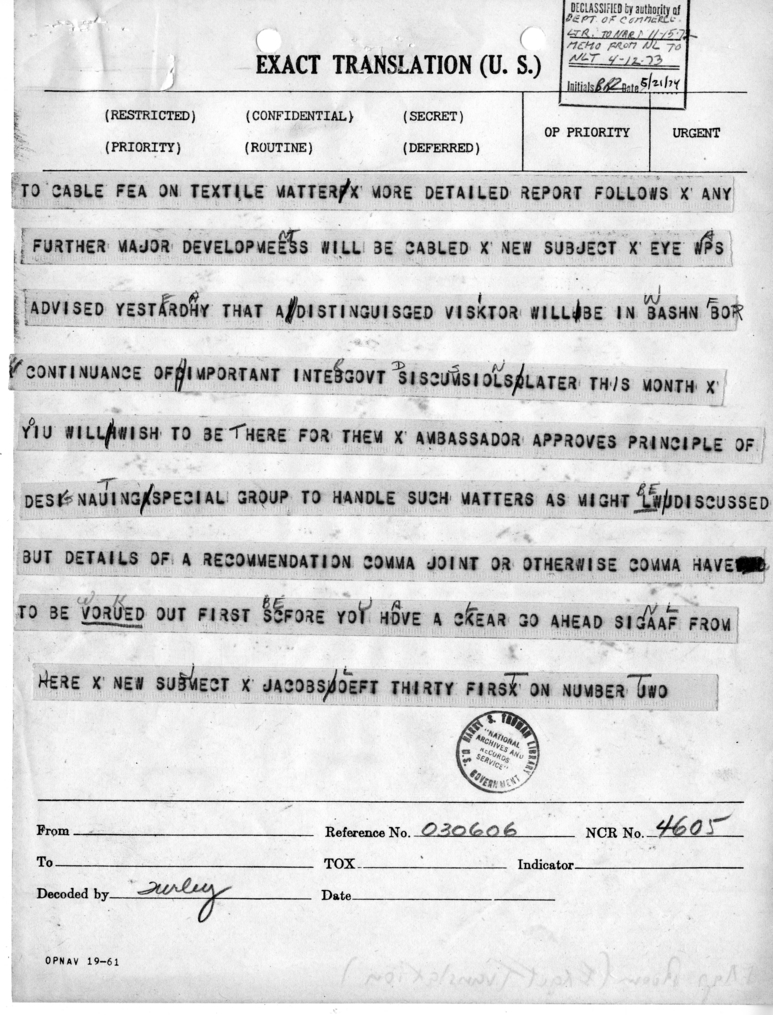 DECLASSIFIED by authority of
DEPT. OF COMMERCE
LTR. TO NARS 11-15-72
MEMO FROM NL TO
NLT 4-12-73
Initials Date 5/21/74
EXACT TRANSLATION (U. S.)
(RESTRICTED) (CONFIDENTIAL) (SECRET)
OP PRIORITY URGENT
(PRIORITY) (ROUTINE) (DEFERRED)
TO CABLE FEA ON TEXTILE MATTER/X MORE DETAILED REPORT FOLLOWS X ANY
FURTHER MAJOR DEVELOPMEESS WILL BE CABLED X NEW SUBJECT X EYE WPS
ADVISED YESTARDHY THAT A/DISTINGUISGED VISKTOR WILL/BE IN BASHN BOR
CONTINUANCE OF/IMPORTANT INTEBGOVT SISCUMSIOLS/LATER TH/S MONTH X
YIU WILL/WISH TO BE THERE FOR THEM X AMBASSADOR APPROVES PRINCIPLE OF
DESI NAUING/SPECIAL GROUP TO HANDLE SUCH MATTERS AS MIGHT LW/DISCUSSED
BUT DETAILS OF A RECOMMENDATION COMMA JOINT OR OTHERWISE COMMA HAVE
TO BE VORUED OUT FIRST SCFORE YOY HOVE A CKEAR GO AHEAD SIGAAF FROM
HERE X NEW SUBMECT X JACOBS/OEFT THIRTY FIRSX ON NUMBER TWO
HARRY S. TRUMAN LIBRARY
"NATIONAL
ARCHIVES AND
RECORDS
SERVICE"
U.S. GOVERNMENT
From Reference No. 030606 NCR No. 4605
To TOX Indicator
Decoded by Turley Date
OPNAV 19-61